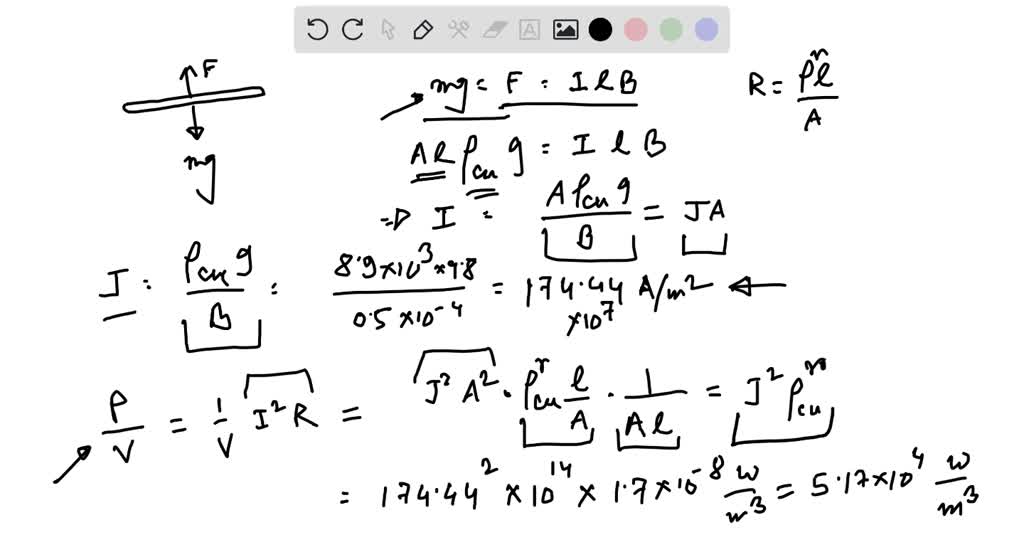 F
mg
mg = F = I l B
R = ρ^r l / A
A l ρ_cu g = I l B
⇒ I = A ρ_cu g / B = J A
J = ρ_cu g / B = 8.9×10^3 × 9.8 / 0.5×10^-4 = 174.44 ×10^7 A/m^2
P/V = 1/V I^2 R = J^2 A^2 · ρ_cu^r l/A · 1/Al = J^2 ρ_cu^r
= 174.44^2 × 10^14 × 1.7×10^-8 w/m^3 = 5.17×10^4 w/m^3